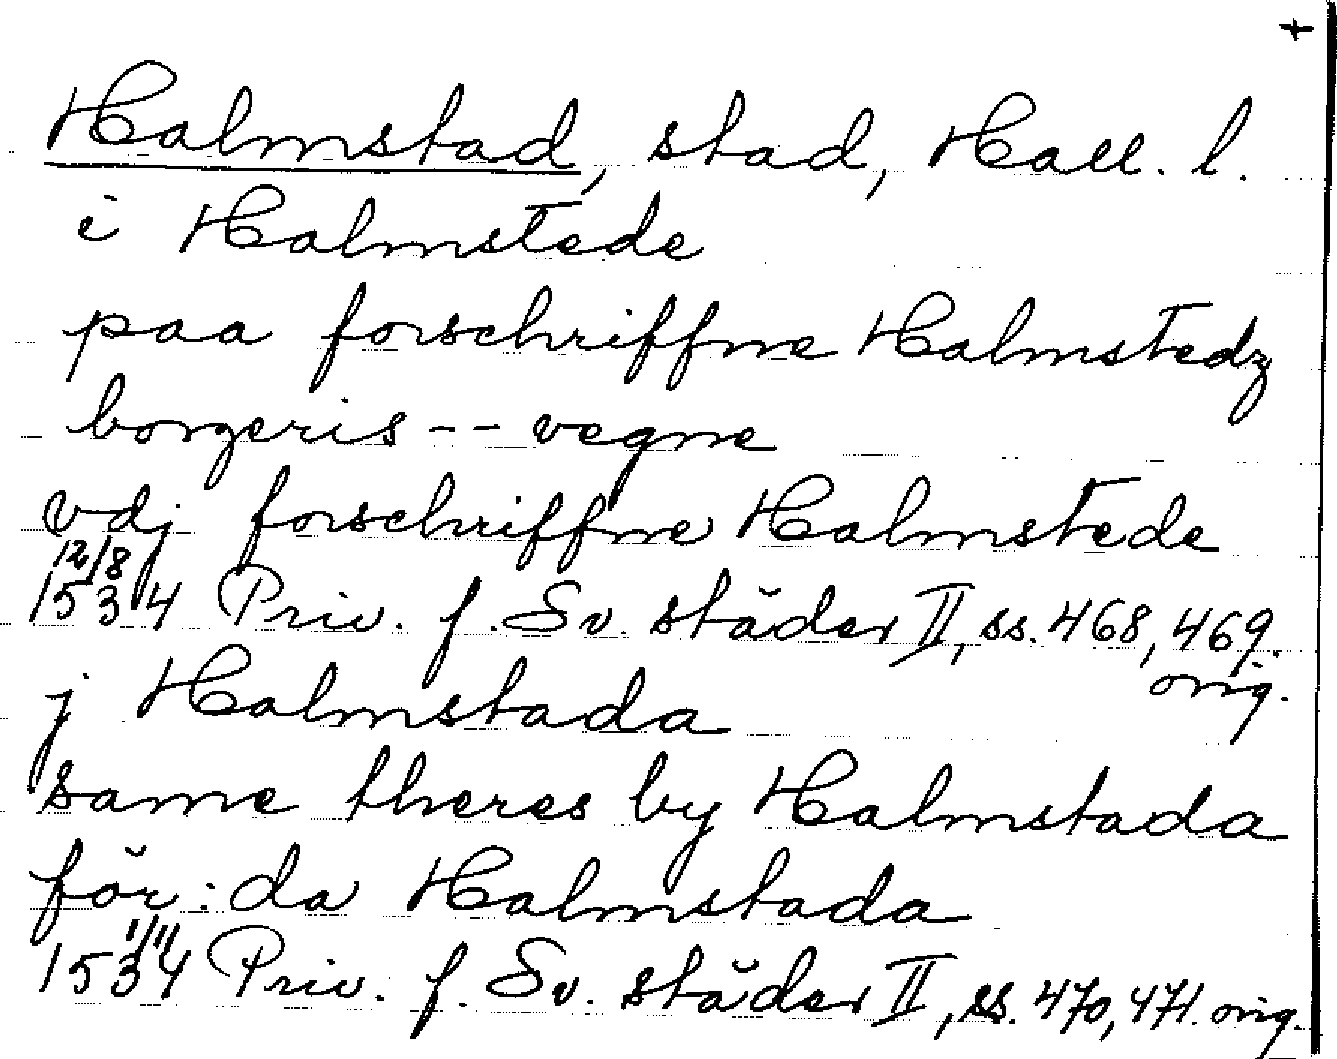 Halmstad, stad, Hall. l.
i Halmstede
paa forschriffne Halmstedz
borgeris -- vegne
vdj forschriffne Halmstede
12/8
1534 Priv. f. Sv. städer II, ss. 468, 469.
orig.
j Halmstada
same theres by Halmstada
för:da Halmstada
1/11
1534 Priv. f. Sv. städer II, ss. 470, 471. orig.